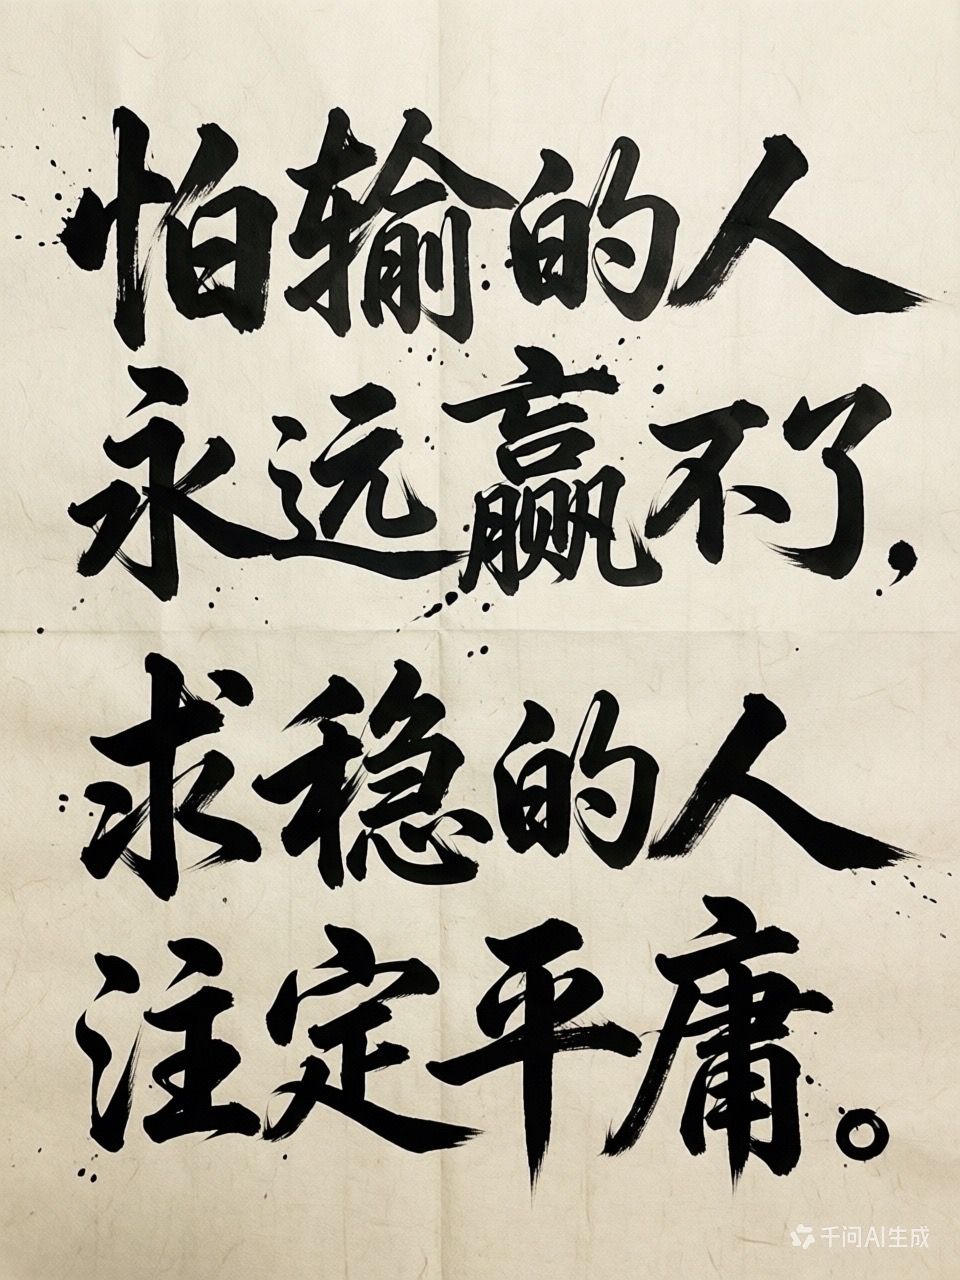 怕输的人
永远赢不了，
求稳的人
注定平庸。
千问AI生成